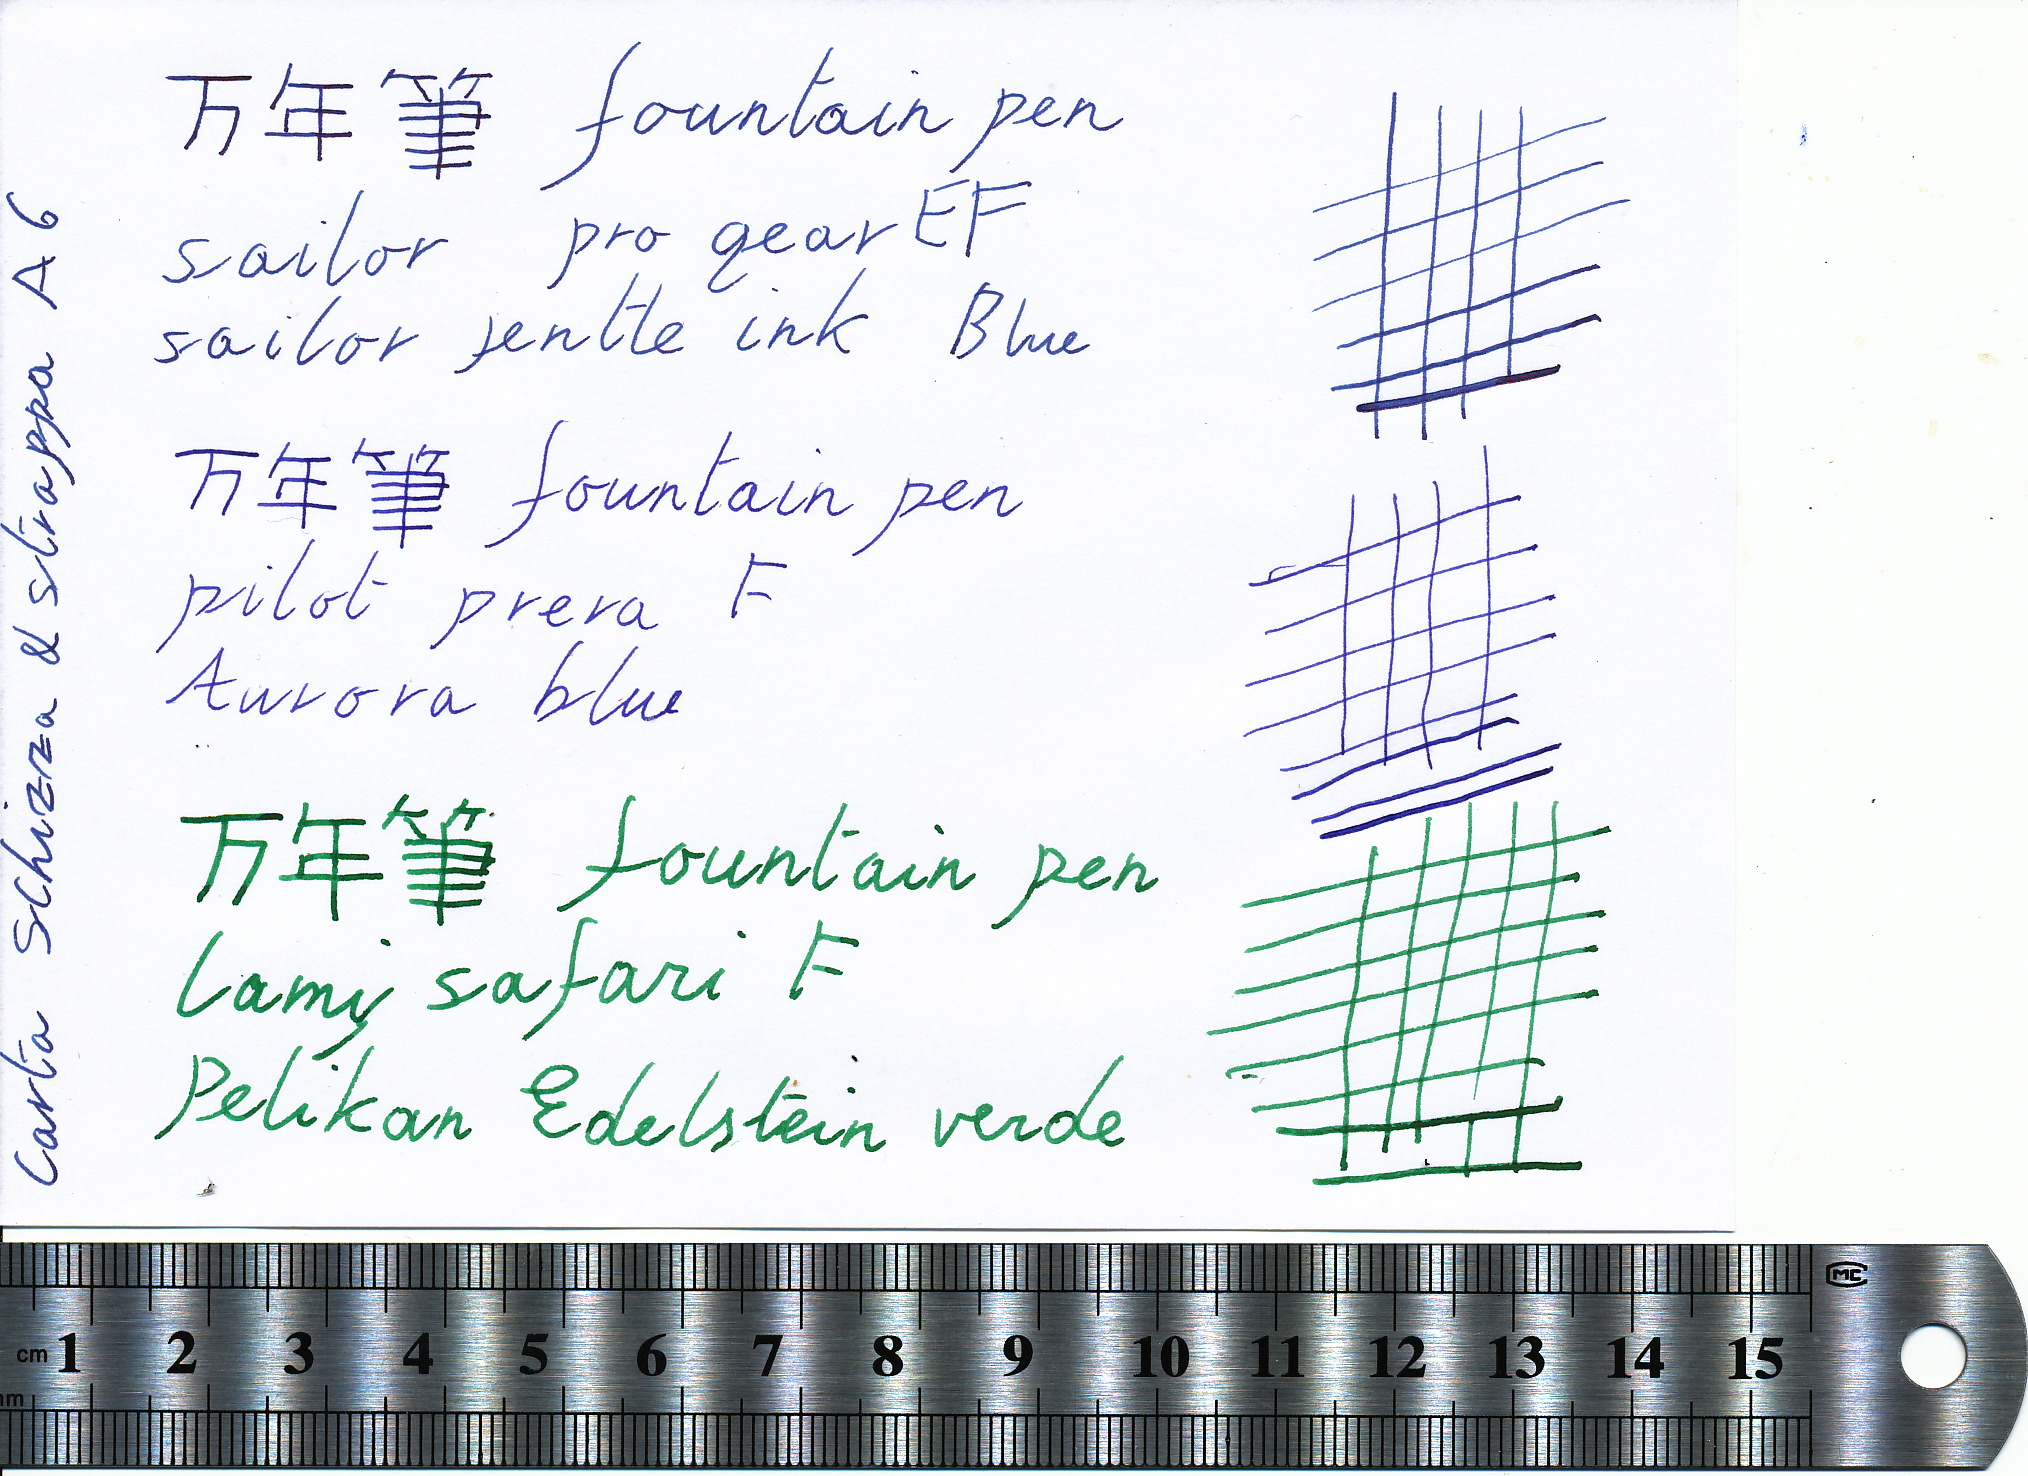 万年筆 fountain pen
sailor pro gear EF
sailor jentle ink Blue
万年筆 fountain pen
pilot prera F
Aurora blue
万年筆 fountain pen
Lamy safari F
Pelikan Edelstein verde
Carta Schizza & strappa A6
MC
cm 1 2 3 4 5 6 7 8 9 10 11 12 13 14 15